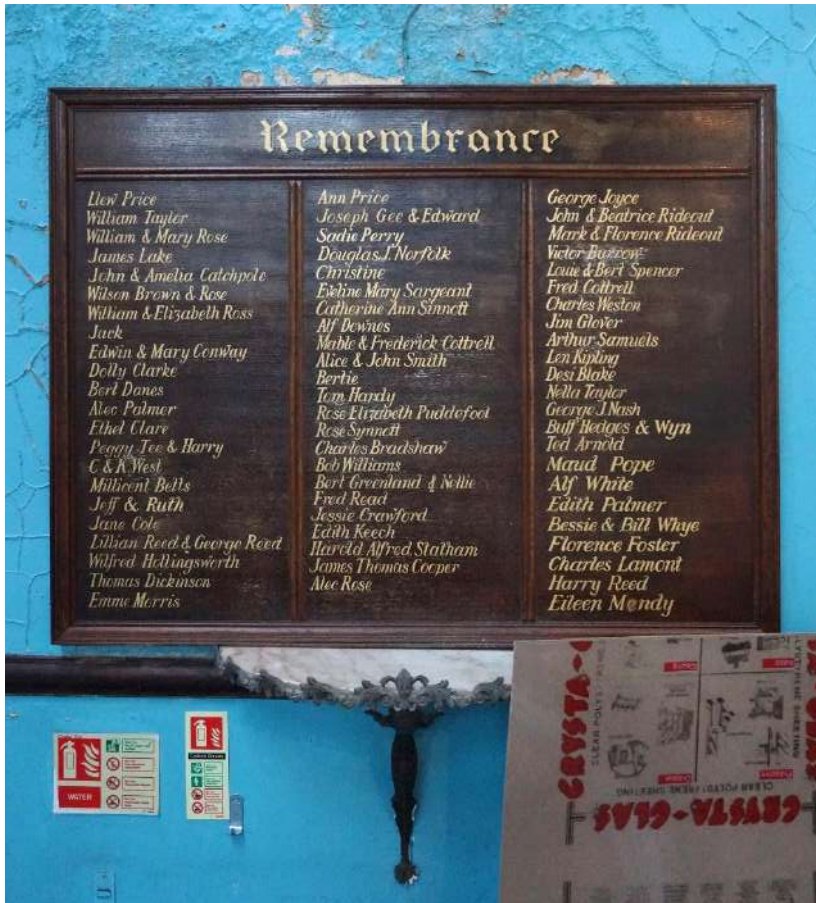 Remembrance
Llew Price
William Taylor
William & Mary Rose
James Lake
John & Amelia Catchpole
Wilson Brown & Rose
William & Elizabeth Ross
Jack
Edwin & Mary Conway
Dolly Clarke
Bert Danes
Alec Palmer
Ethel Clare
Peggy Tee & Harry
C & K West
Millicent Bells
Jeff & Ruth
Jane Cole
Lillian Reed & George Reed
Wilfred Hollingsworth
Thomas Dickinson
Emme Morris
Ann Price
Joseph Gee & Edward
Sadie Perry
Douglas J. Norfolk
Christine
Eveline Mary Sargeant
Catherine Ann Sinnott
Alf Downes
Mable & Frederick Cottrell
Alice & John Smith
Bertie
Tom Hardy
Rose Elizabeth Puddefoot
Rose Synnott
Charles Bradshaw
Bob Williams
Bert Greenland & Nellie
Fred Read
Jessie Crawford
Edith Keech
Harold Alfred Statham
James Thomas Cooper
Alec Rose
George Joyce
John & Beatrice Rideout
Mark & Florence Rideout
Victor Burrows
Louie & Bert Spencer
Fred Cottrell
Charles Weston
Jim Glover
Arthur Samuels
Len Kipling
Desi Blake
Nella Taylor
George J Nash
Buff Hedges & Wyn
Ted Arnold
Maud Pope
Alf White
Edith Palmer
Bessie & Bill Whye
Florence Foster
Charles Lamont
Harry Reed
Eileen Mondy
WATER
CRYSTA-GLAS
CLEAR POLYSTYRENE SHEETING
CRYSTA-GLAS
CLEAR POLYSTYRENE SHEETING